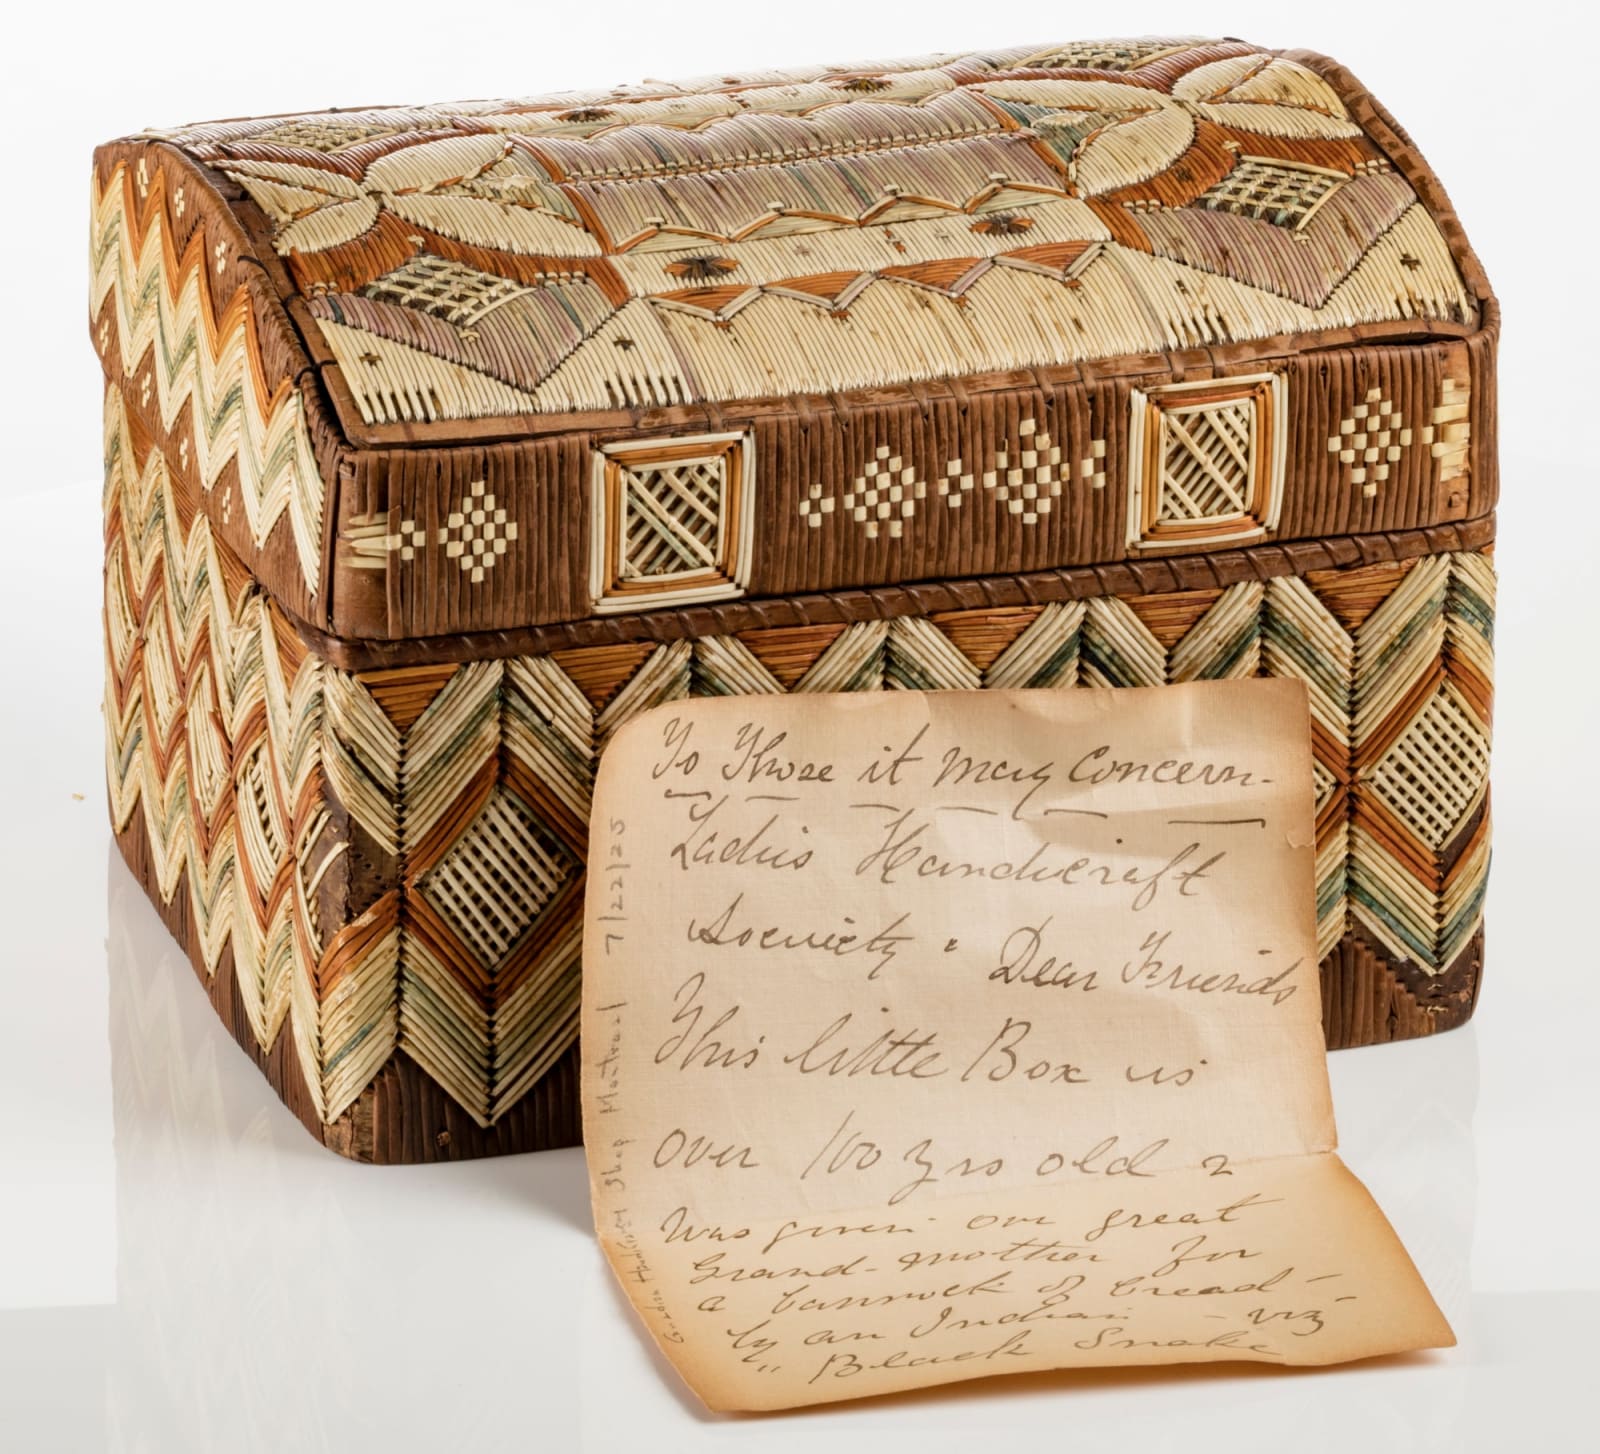 To Those it May Concern-
Ladies Handicraft
Socviety " Dear Friends
This little Box is
over 100 yrs old &
was given our great
Grand-mother for
a bannock of bread -
by an Indian - viz
" Black Snake
Canadian Handicraft Shop Montreal 7/22/25